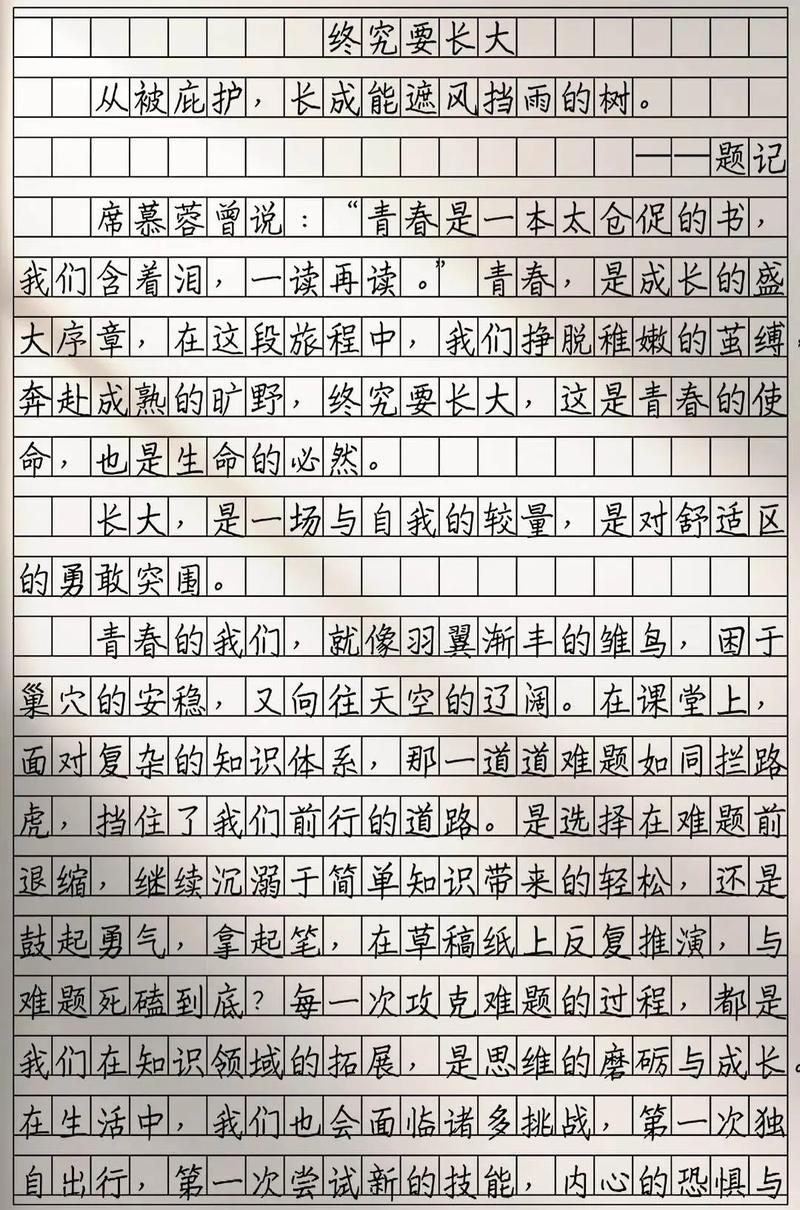 终究要长大
从被庇护，长成能遮风挡雨的树。
——题记
席慕蓉曾说：“青春是一本太仓促的书，
我们含着泪，一读再读。”青春，是成长的盛
大序章，在这段旅程中，我们挣脱稚嫩的茧缚，
奔赴成熟的旷野，终究要长大，这是青春的使
命，也是生命的必然。
长大，是一场与自我的较量，是对舒适区
的勇敢突围。
青春的我们，就像羽翼渐丰的雏鸟，困于
巢穴的安稳，又向往天空的辽阔。在课堂上，
面对复杂的知识体系，那一道道难题如同拦路
虎，挡住了我们前行的道路。是选择在难题前
退缩，继续沉溺于简单知识带来的轻松，还是
鼓起勇气，拿起笔，在草稿纸上反复推演，与
难题死磕到底？每一次攻克难题的过程，都是
我们在知识领域的拓展，是思维的磨砺与成长。
在生活中，我们也会面临诸多挑战，第一次独
自出行，第一次尝试新的技能，内心的恐惧与